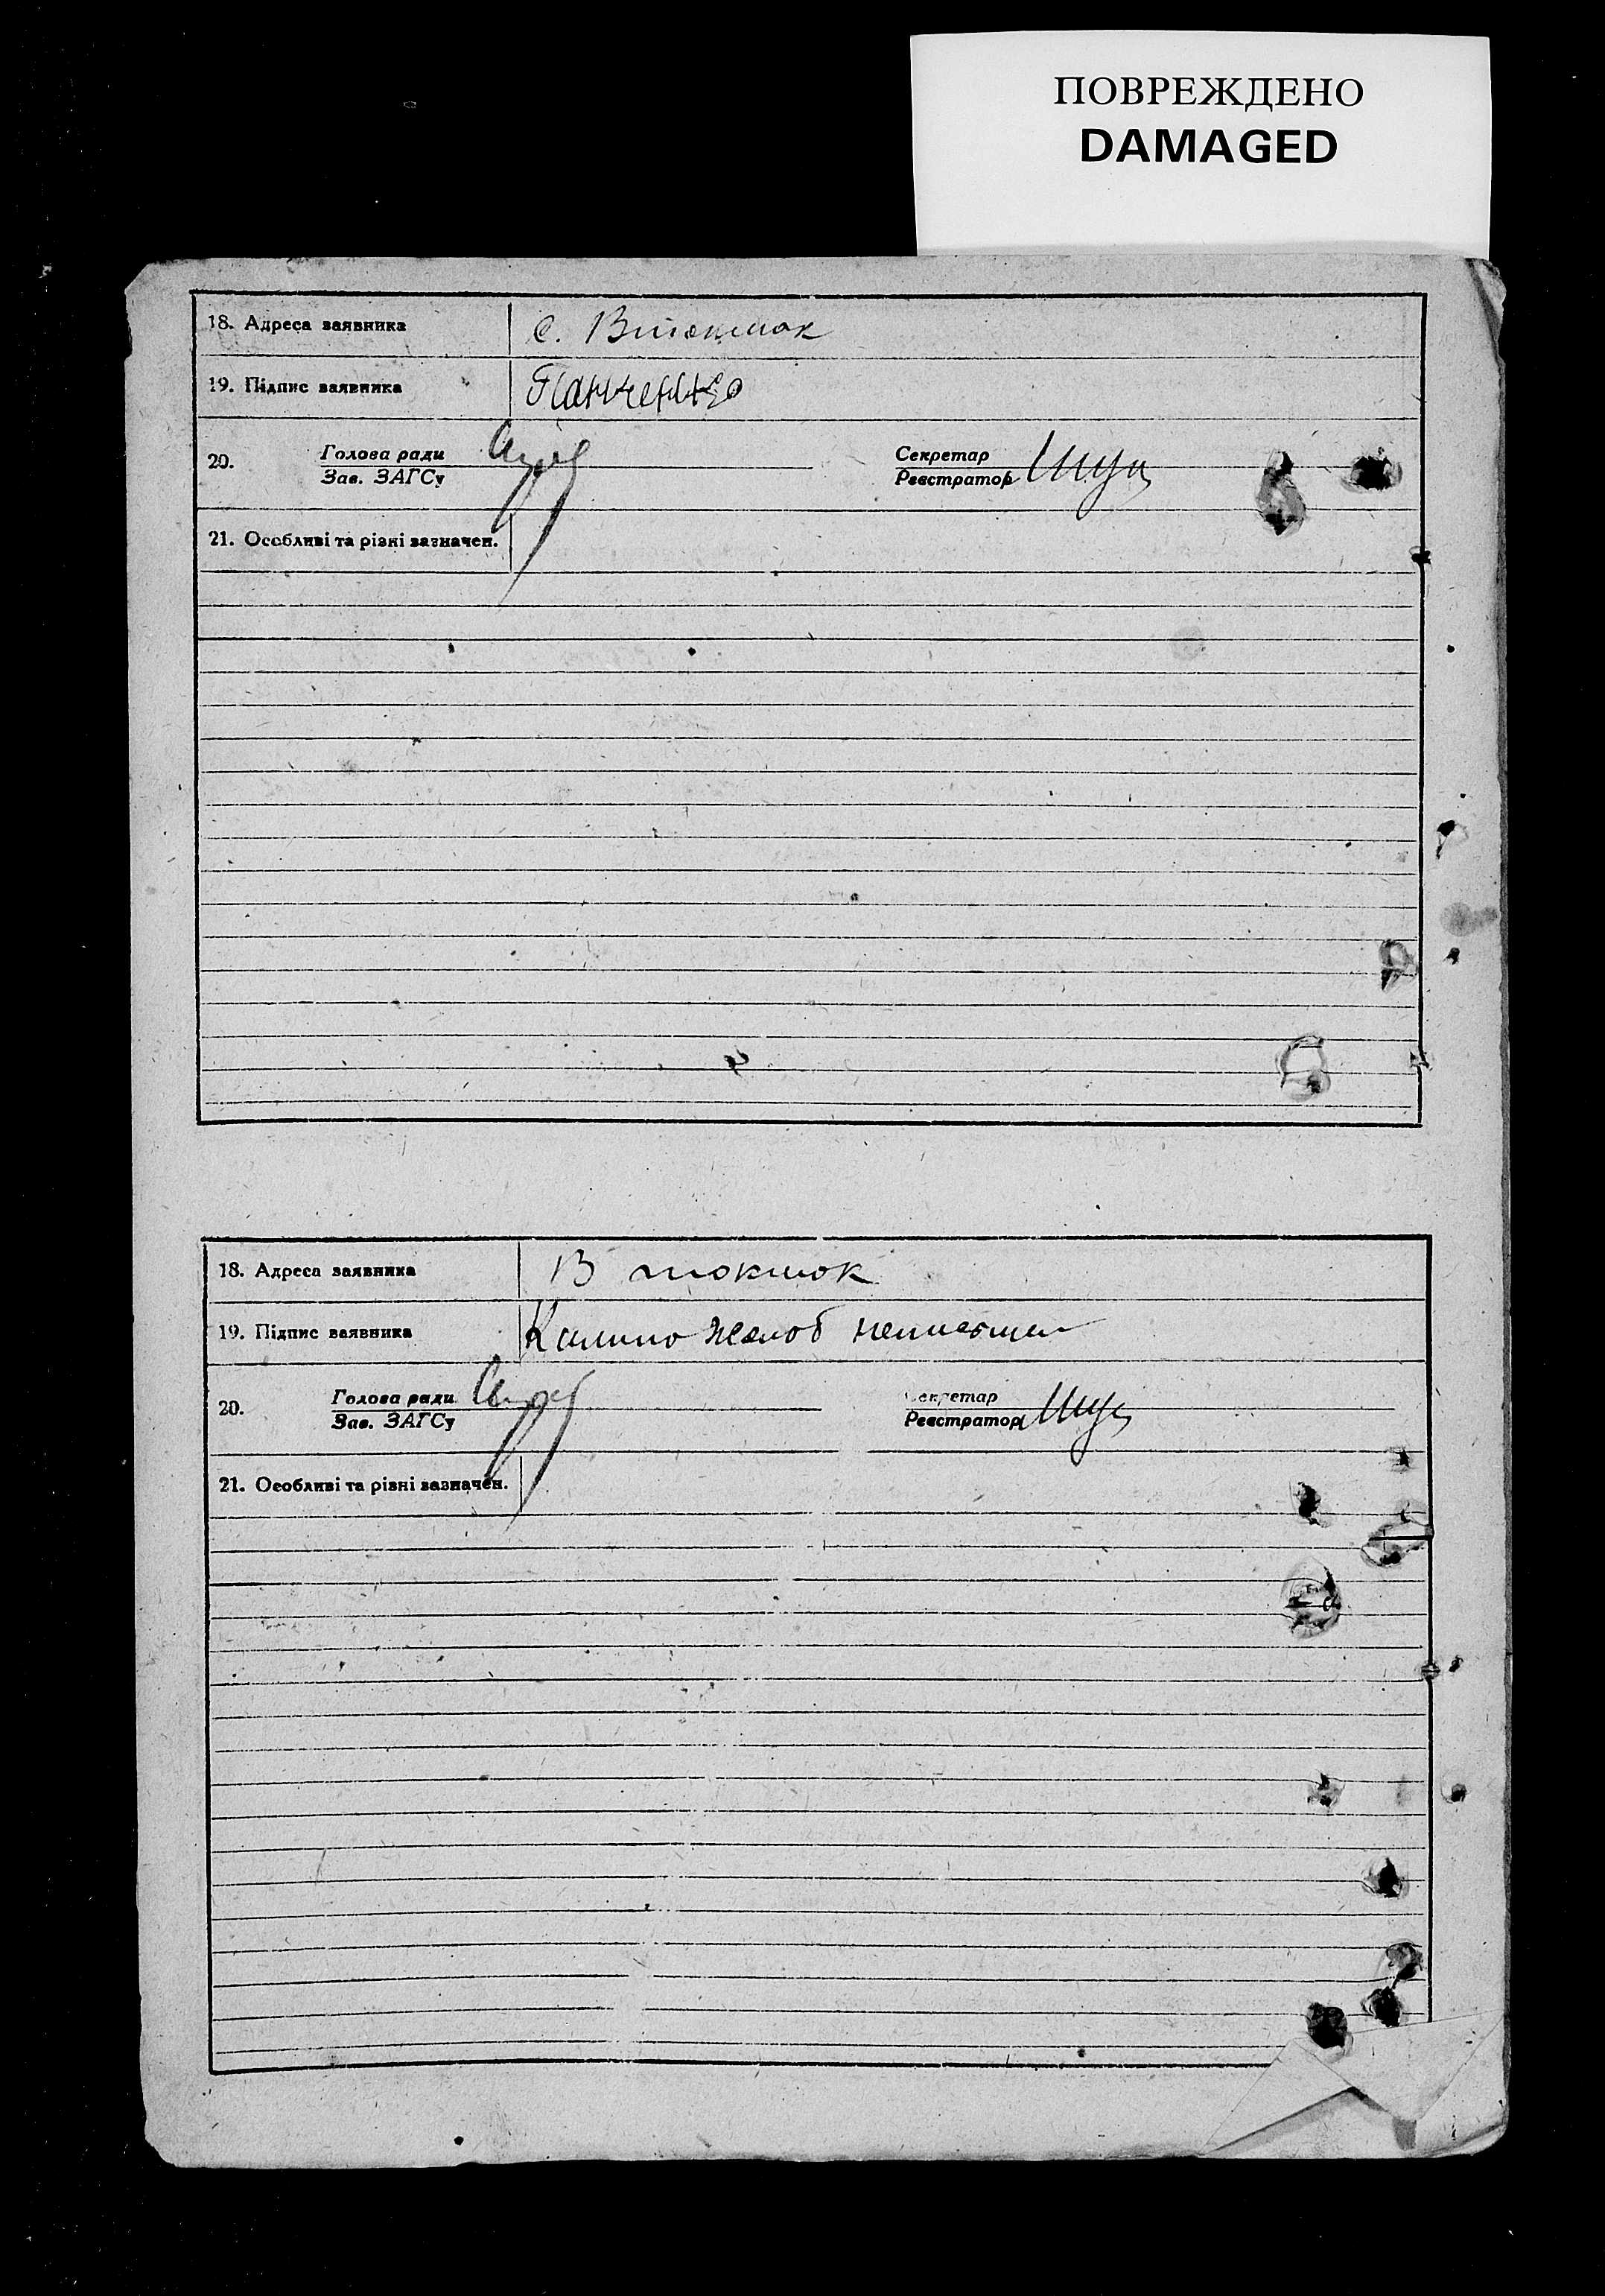 ПОВРЕЖДЕНО
DAMAGED
18. Адреса заявника
с. Втокмак
19. Підпис заявника
Панченко
20. Голова ради
Зав. ЗАГСу
Секретар
Реєстратор
21. Особливі та різні зазначен.
18. Адреса заявника
В токмок
19. Підпис заявника
20. Голова ради
Зав. ЗАГСу
Секретар
Реєстратор
21. Особливі та різні зазначен.